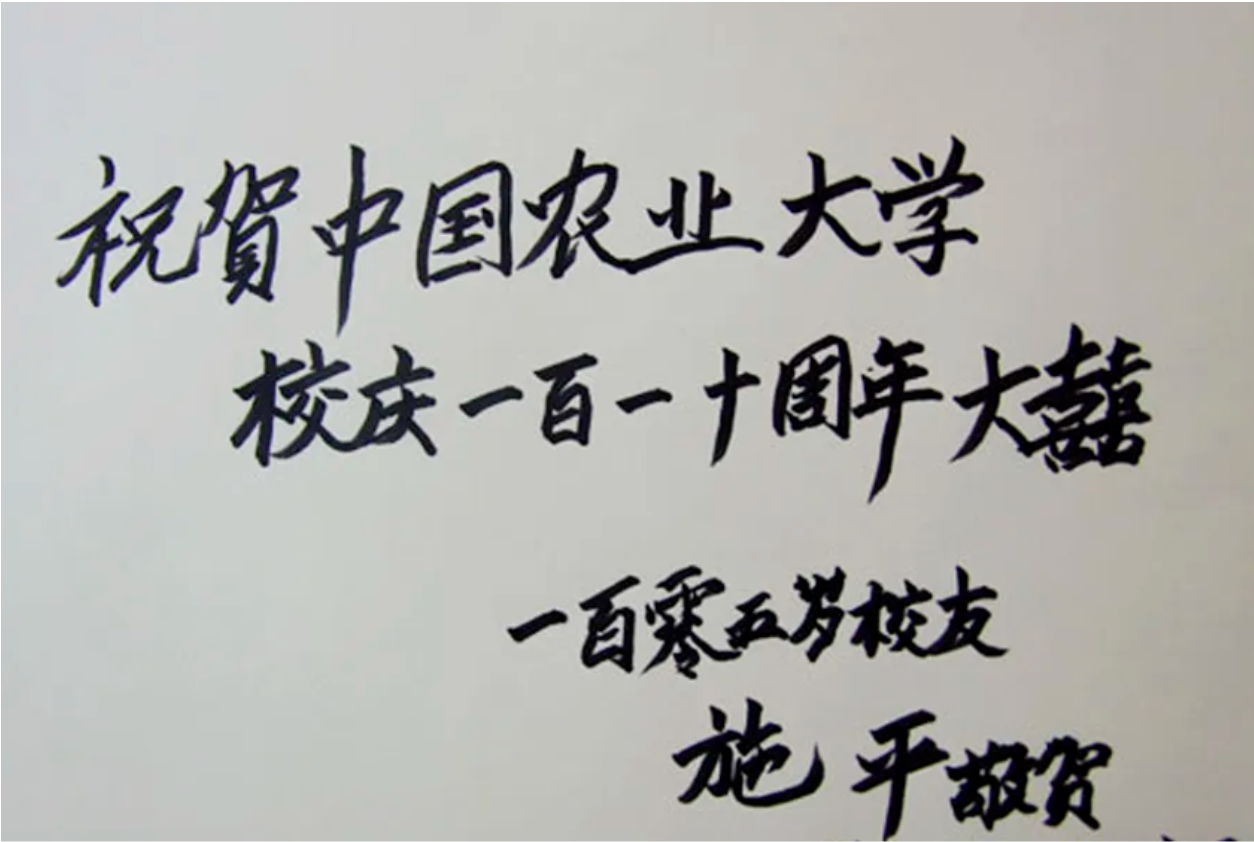 祝賀中国农业大学
校庆一百一十周年大囍
一百零五岁校友
施平敬贺